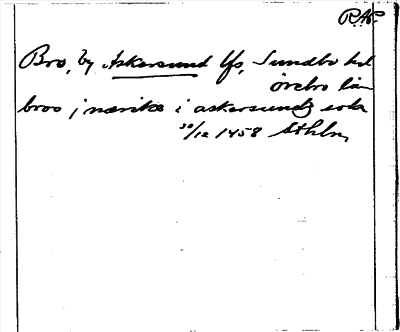 RAP.
Bro, by Askersund lfs, Sundbo hd
örebro län
broo j nærike i askersundz sokn
30/12 1458 Sthlm